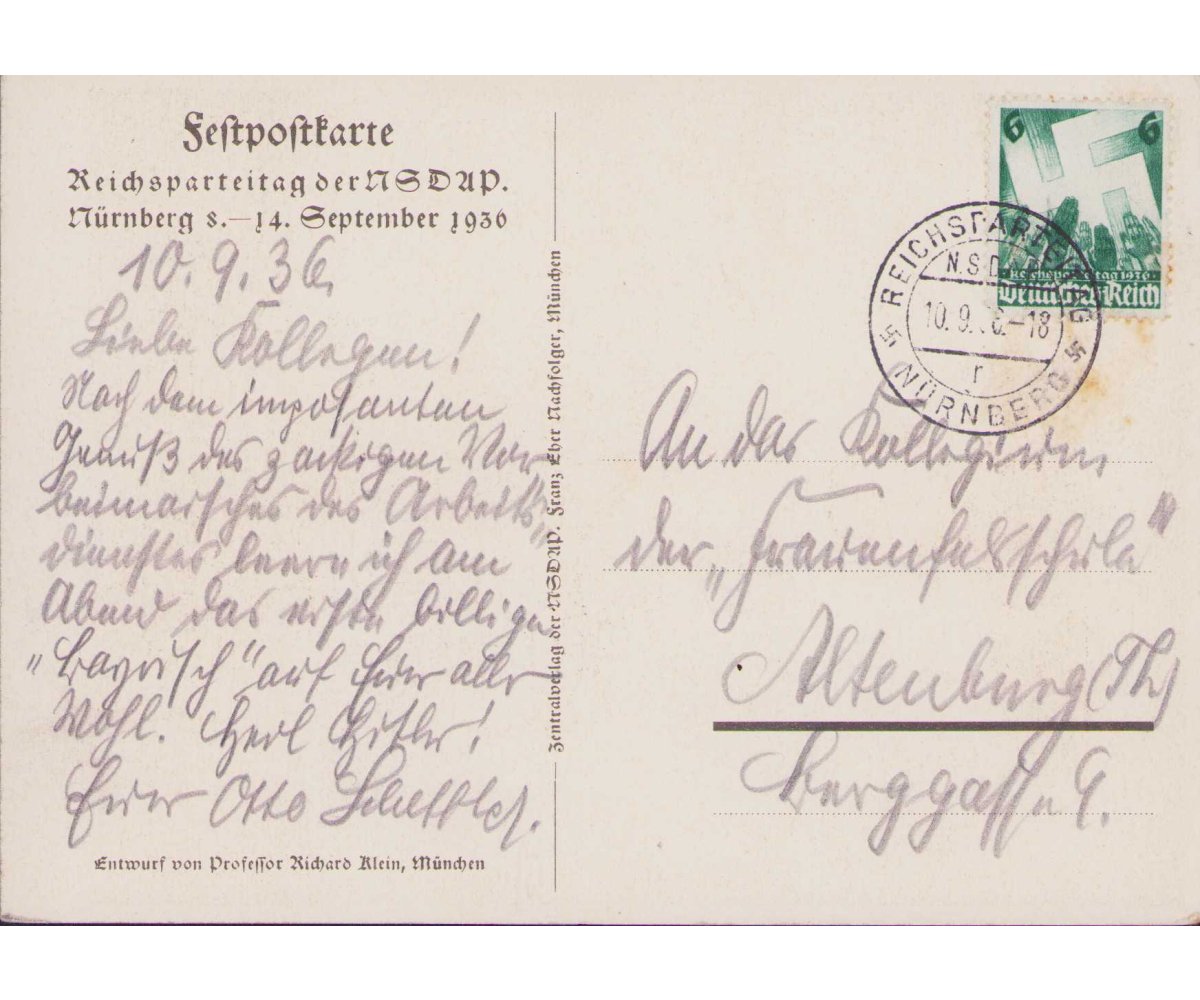 Festpostkarte
Reichsparteitag der NSDAP.
Nürnberg 8.—14. September 1936
10.9.36.
Liebe Kollegen!
Nach dem imposanten
Genuß des zackigen Vor-
beimarsches des Arbeits-
dienstes leere ich am
Abend das erste billige
„Bayrisch" auf Euer aller
Wohl. Heil Hitler!
Euer Otto
Entwurf von Professor Richard Klein, München
Zentralverlag der NSDAP. Franz Eher Nachfolger, München
6 6
Reichsparteitag 1936
Deutsches Reich
REICHSPARTEITAG
N.S.D.A.P.
10.9.36.-18
r
NÜRNBERG
An das Kollegium
der „Frauenfelsschule"
Altenburg (Th)
Berggasse 9.